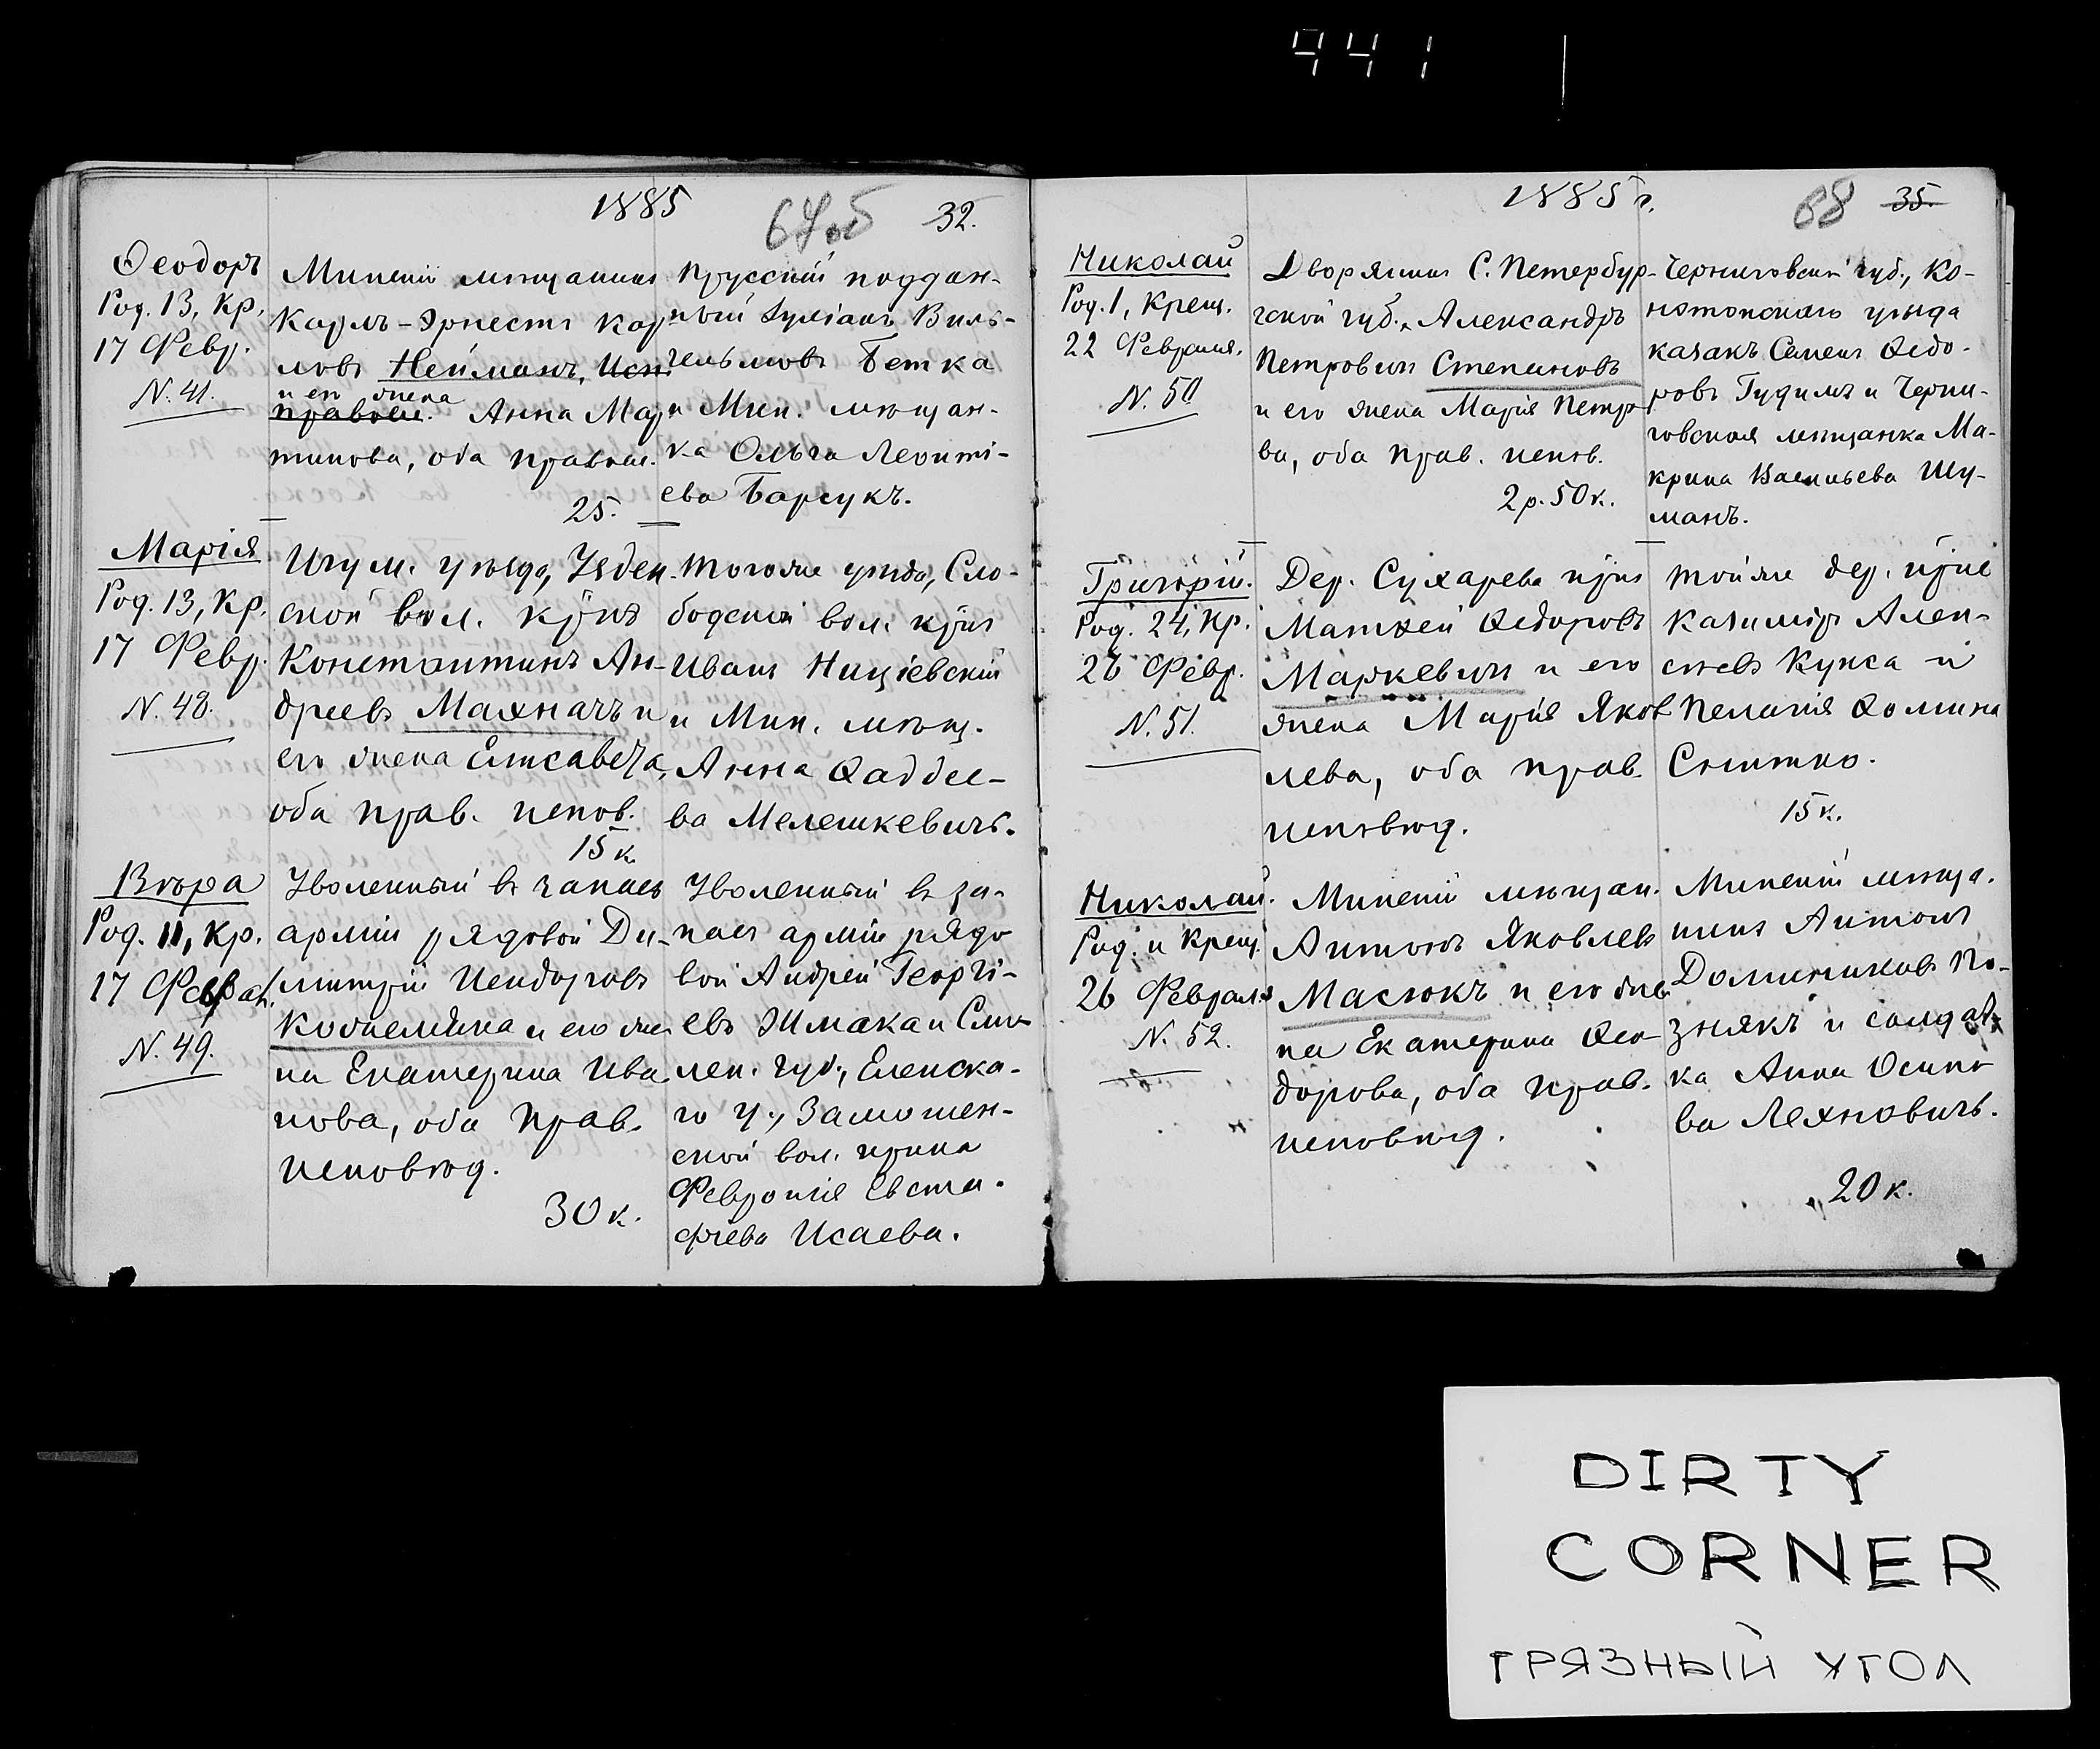 441
1885
67об
32.
Ѳеодоръ
Род. 13, Кр.
17 Февр.
N. 41.
Минскій мѣщанинъ
Карлъ-Эрнестъ Кар
ловъ Нейманъ, Исп
и его жена
правосл. Анна Мар
тинова, оба правосл.
25.
Прусскій поддан-
ный Юліанъ Виль-
гельмовъ Бетка
и Мин. мѣщан-
ка Ольга Леонті-
ева Барсукъ.
Марія
Род. 13, Кр.
17 Февр.
N. 48.
Игум. уѣзда, Узден-
ской вол. крнъ
Константинъ Ан-
дреевъ Махначъ и
его жена Елисавета,
оба прав. испов.
15 к.
Тогоже уѣзда, Сло-
бодской вол. крнъ
Иванъ Ницієвскій
и Мин. мѣщ.
Анна Ѳаддее-
ва Мелешкевичъ.
Вѣра
Род. 11, Кр.
17 Феврал.
N. 49.
Уволенный въ запасъ
арміи рядовой Ди-
митрій
и его же
на Екатерина Ива
нова, оба прав.
исповѣд.
30 к.
Уволенный въ за-
пасъ арміи рядо
вой Андрей Георгі-
евъ Шмака и Смо
лен. губ., Еленска-
го у., Замошен-
ской вол. крнка
Февронія Евста-
фіева Исаева.
1885 г.
68
35.
Николай
Род. 1, Крещ.
22 Февраля.
N. 50
Дворянинъ С. Петербур-
гской губ., Александръ
Петровичъ Степановъ
и его жена Марія Петро
ва, оба прав. испов.
2 р. 50 к.
Черниговской губ., Ко-
нотопскаго уѣзда
казакъ Семенъ Ѳедо-
ровъ Гудимъ и Черни-
говская мѣщанка Ма-
крина Васильева Шу-
манъ.
Григорій.
Род. 24, Кр.
26 Февр.
N. 51.
Дер. Сухарева крнъ
Матѳей Ѳедоровъ
Маркевичъ и его
жена Марія Яков
лева, оба прав.
исповѣд.
Тойже дер. крне
Казиміръ Алек-
сѣевъ Кукса и
Пелагія Ѳомина
Снитко.
15 к.
Николай.
Род. и Крещ.
26 Февраля
N. 52.
Минскій мѣщан.
Антонъ Яковлевъ
Масюкъ и его же
на Екатерина Ѳео
дорова, оба прав.
исповѣд.
Минскій мѣща.
нинъ Антонъ
Доминиковъ По-
знякъ и солдат
ка Анна Осипо
ва Лехновичъ.
20 к.
DIRTY
CORNER
ГРЯЗНЫЙ УГОЛ